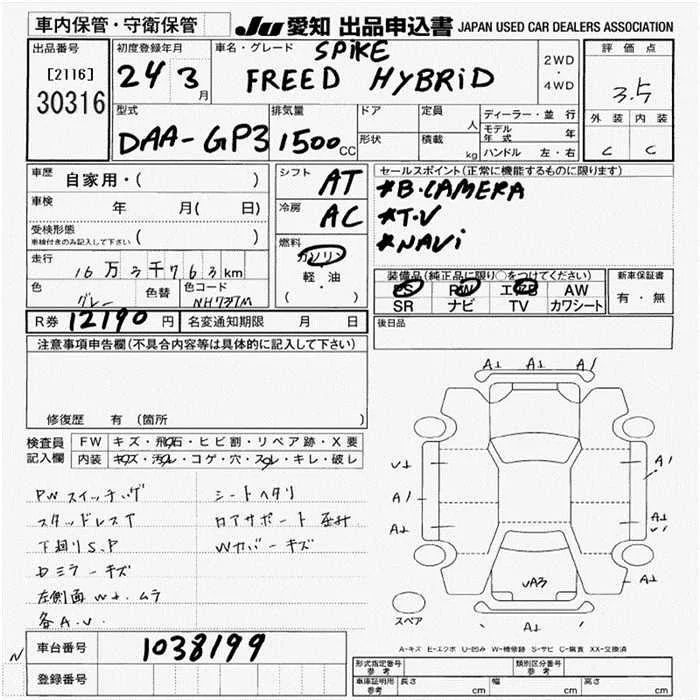 車内保管・守衛保管
JU 愛知 出品申込書 JAPAN USED CAR DEALERS ASSOCIATION
出品番号
[2116]
30316
初度登録年月
24 3月
車名・グレード
SPiKE
FREED HYBRiD
2WD
・
4WD
評価点
3.5
外装 内装
C C
型式
DAA-GP3
排気量
1500 CC
ドア
形状
定員
人
積載
kg
ディーラー・並行
モデル年式 年
ハンドル 左・右
車歴 自家用・( )
車検 年 月( 日)
受検形態
車検付きのみ記入して下さい ( )
走行 16万3千763km
色 グレー 色替 色コード NH737M
シフト AT
冷房 AC
燃料
ガソリン
軽・油
( ・ )
セールスポイント(正常に機能するものに限ります)
*B.CAMERA
*T.V
*NAVi
装備品(純正品に限り○をつけてください)
PS PW エアB AW
SR ナビ TV カワシート
新車保証書
有・無
R券 12190 円 名変通知期限 月 日
後日品
注意事項申告欄(不具合内容等は具体的に記入して下さい)
修復歴 有 (箇所 )
検査員
記入欄
FW キズ・飛石・ヒビ割・リペア跡・X要
内装 キズ・汚れ・コゲ・穴・スレ・キレ・破レ
PWスイッチ
シートヘタリ
スタッドレスT
ロアサポート
下廻りS.P
Wカバーキズ
ミラーキズ
左側面 ムラ
各A.U.
A1 A1 A1
U1
A1
A1
A1
A1
U1
A1
UA3
A1
スペア
A-キズ E-エクボ U-凹み W-補修跡 S-サビ C-腐食 XX-交換済
N
車台番号 1038199
登録番号
形式指定番号
参考
類別区分番号
参考
車庫証明用
参考
長さ cm 幅 cm 高さ cm